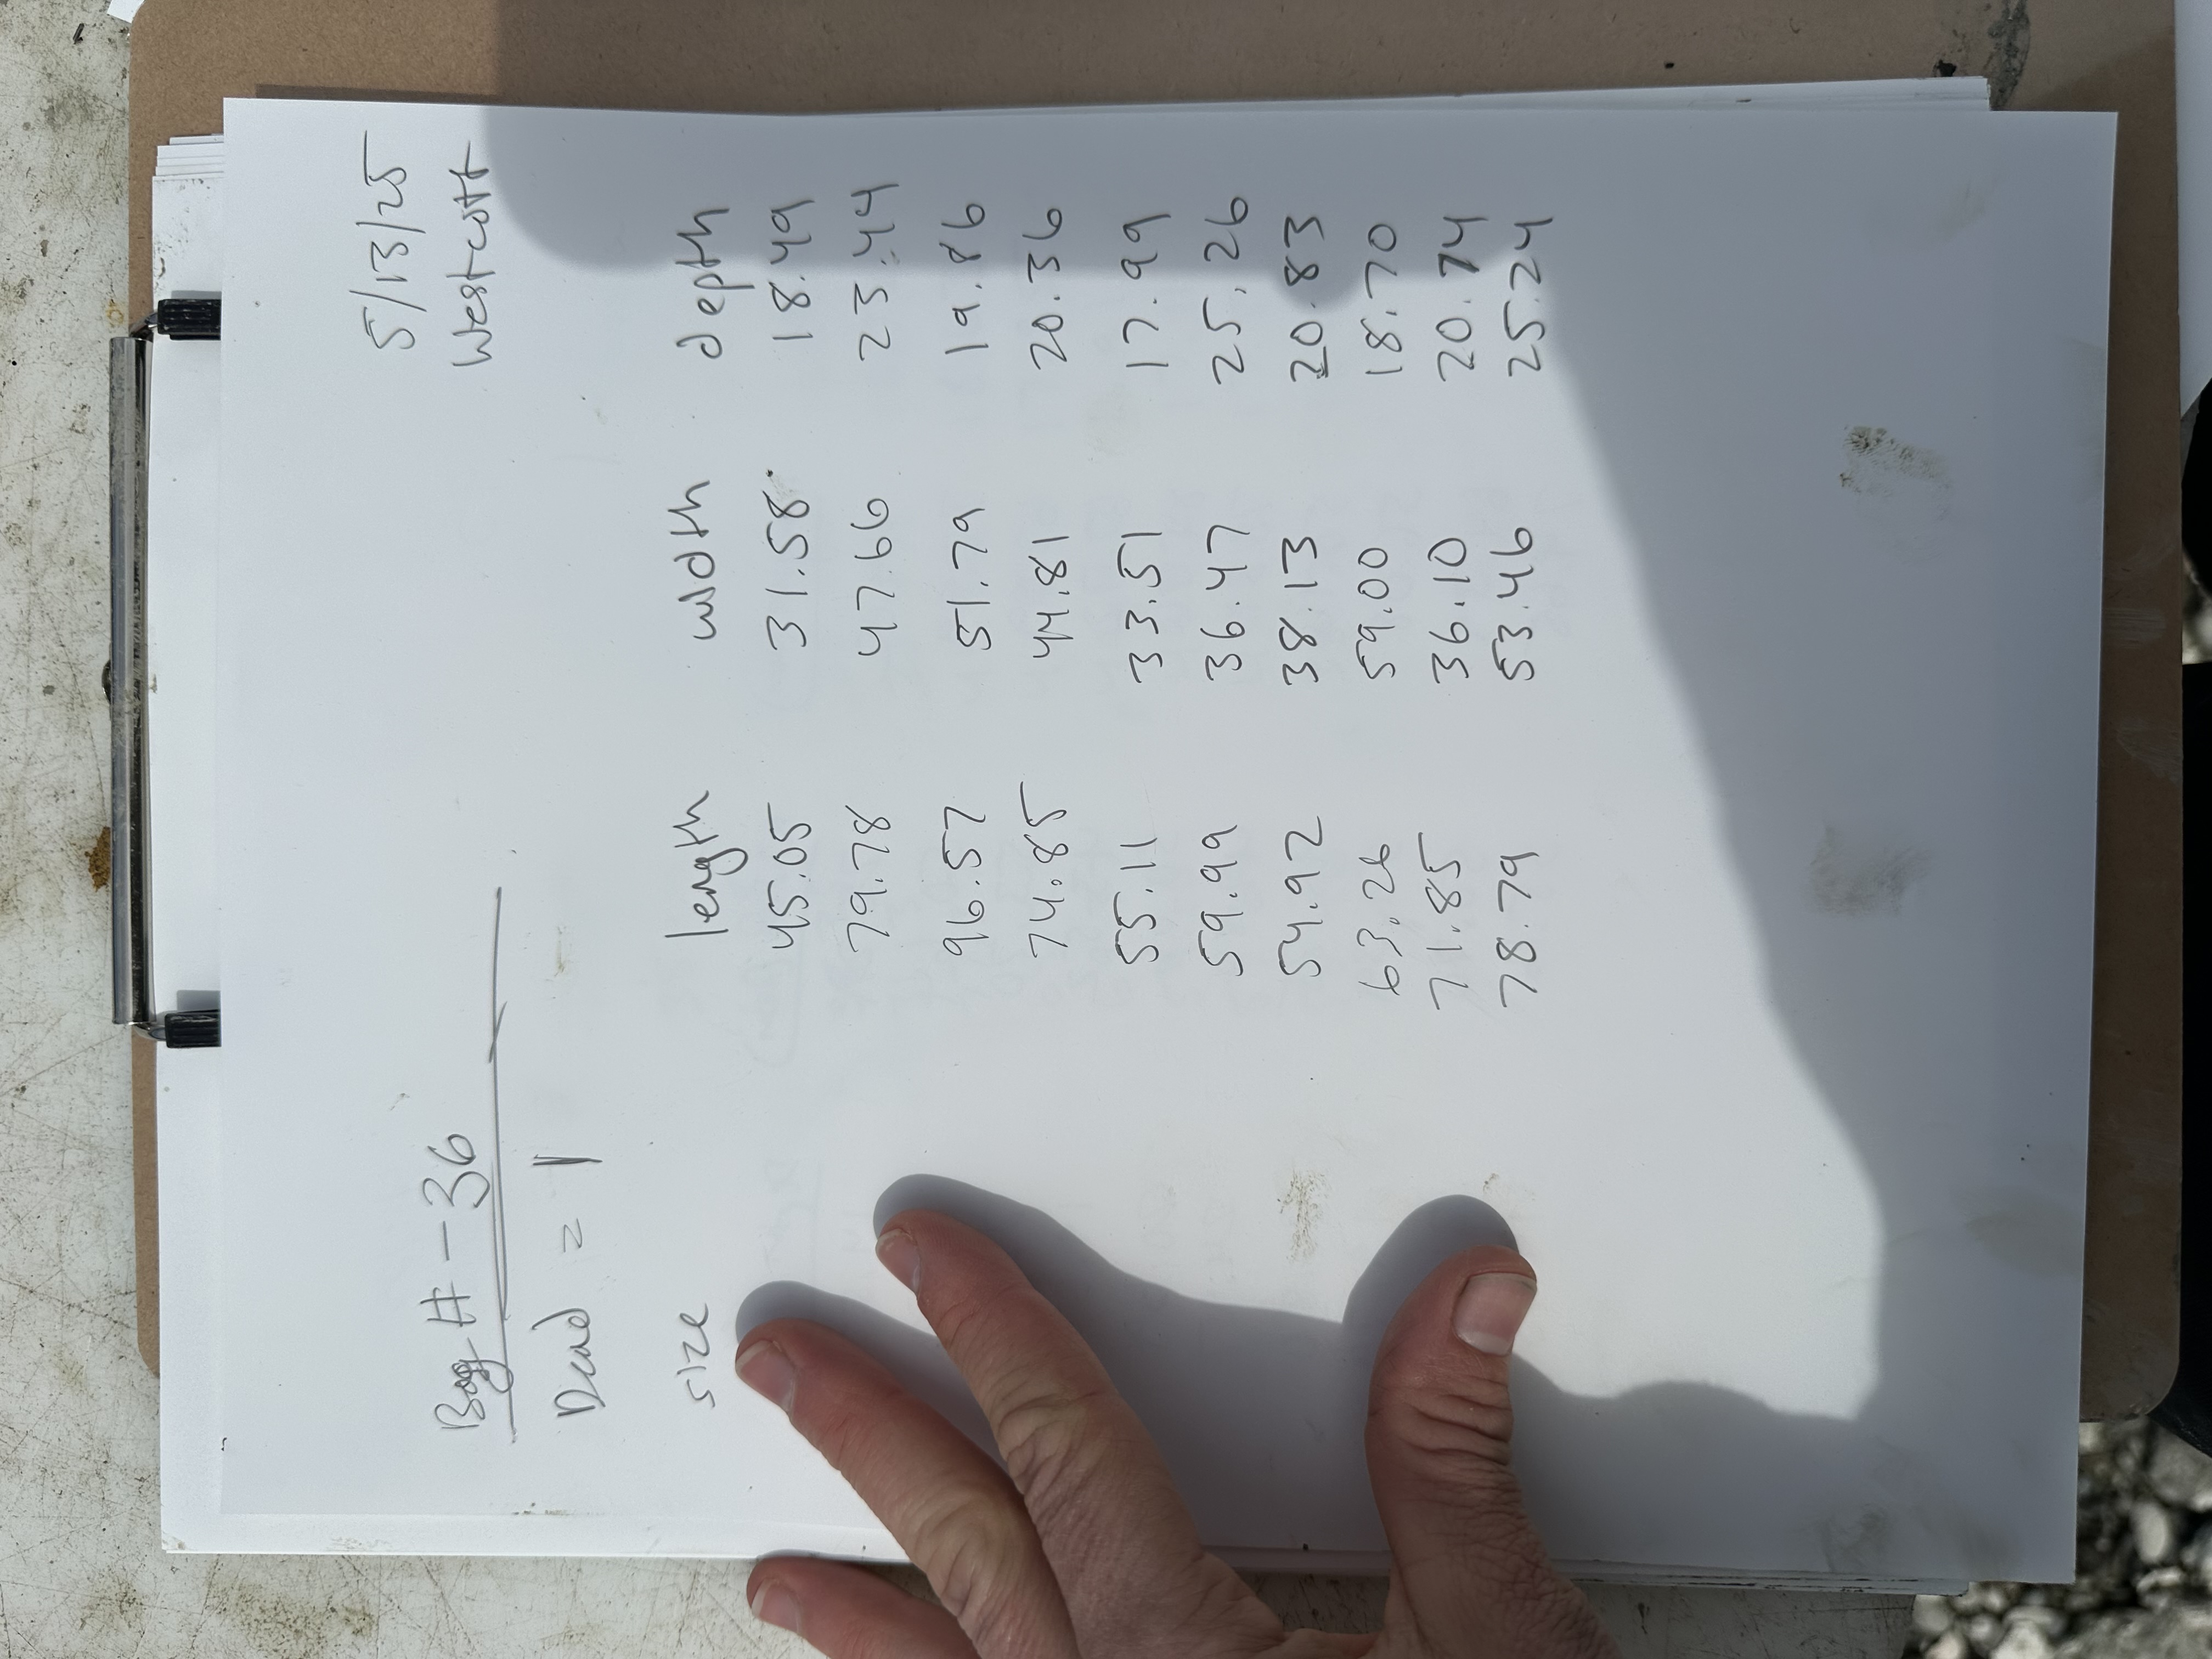 5/13/25
Westcott
Bag # - 36
Dead = 1
size length width depth
45.05 31.58 18.49
79.78 47.66 23.44
96.57 51.79 19.86
74.85 44.81 20.36
55.11 33.51 17.99
59.99 36.47 25.26
54.92 38.13 20.83
63.26 59.00 18.70
71.85 36.10 20.74
78.79 53.46 25.24